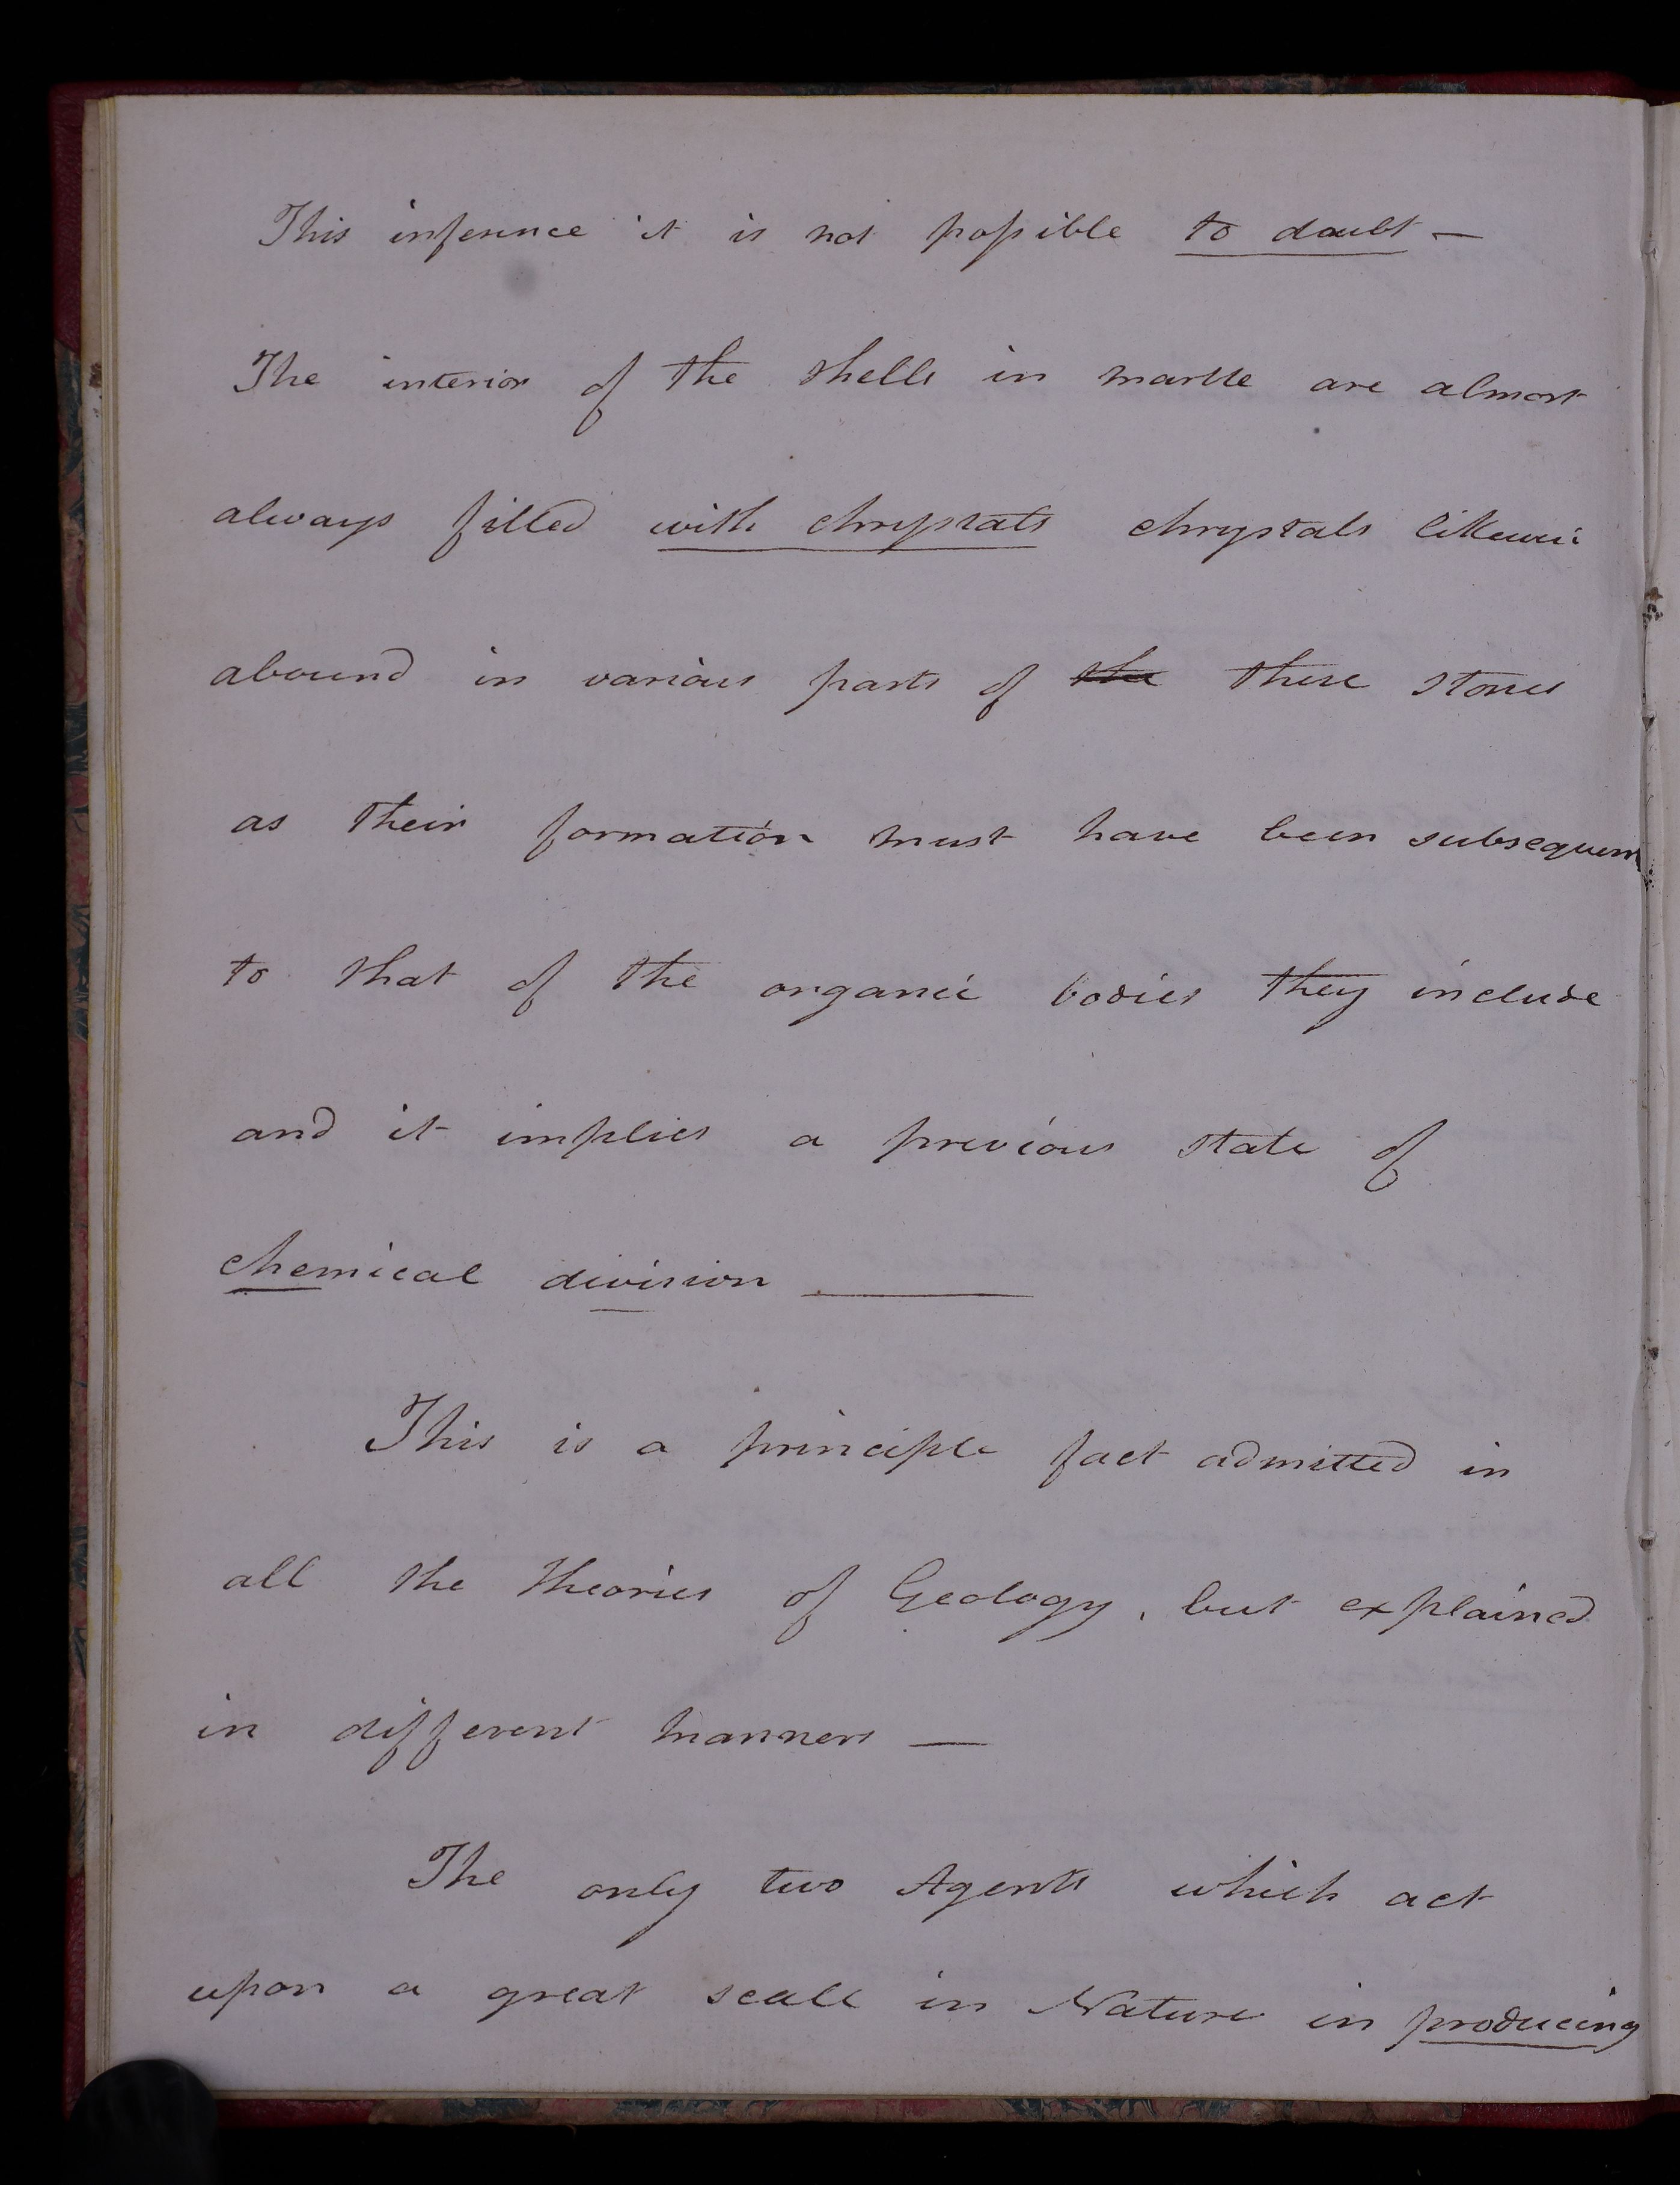 This inference it is not possible to doubt —
The interior of the shells in marble are almost
always filled with chrystals chrystals likewi:
abound in various parts of the these stones
as their formation must have been subsequent
to that of the organic bodies they include
and it implies a previous state of
chemical division ———
This is a principle fact admitted in
all the theories of Geology, but explained
in different manners —
The only two Agents which act
upon a great scale in Nature in producing